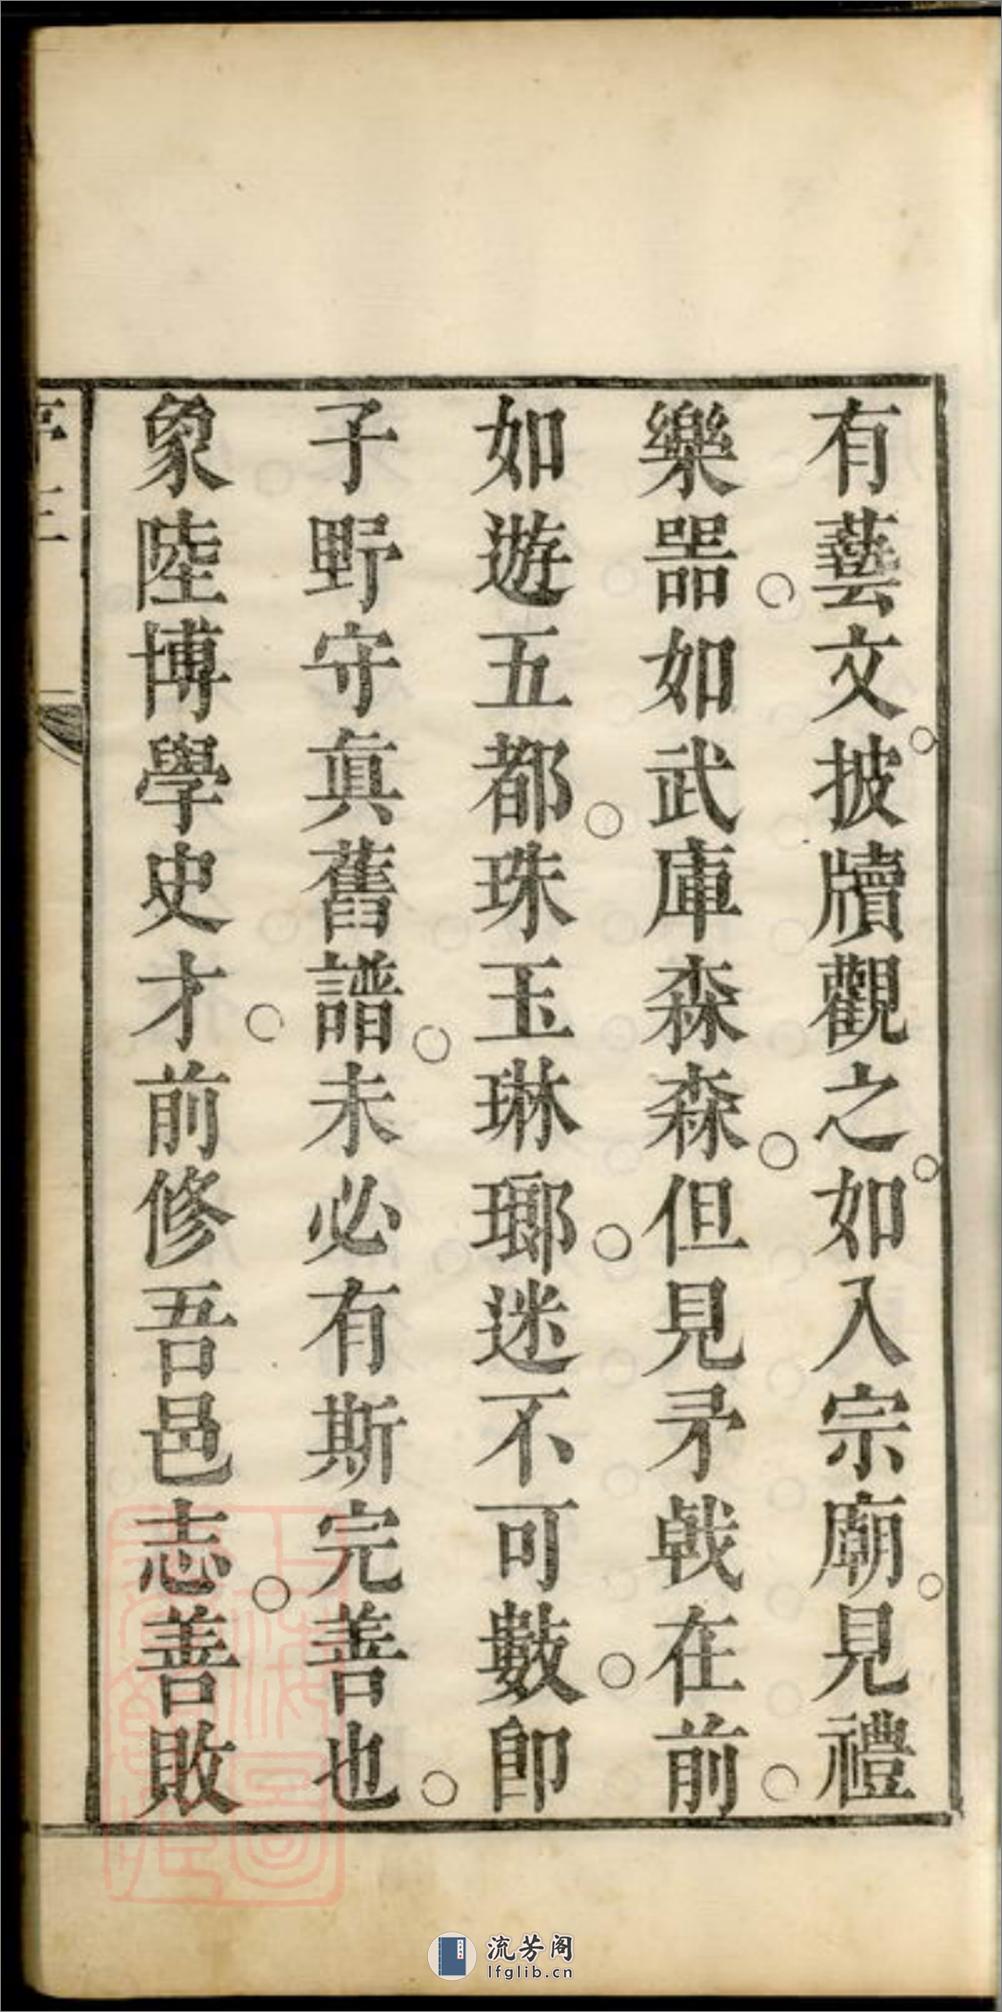 有藝文披牘觀之如入宗廟見禮
樂器如武庫森森但見矛戟在前
如遊五都珠玉琳瑯迷不可數卽
子野守真舊譜未必有斯完善也
象陸博學史才前修吾邑志善敗
流芳阁
lfglib.cn